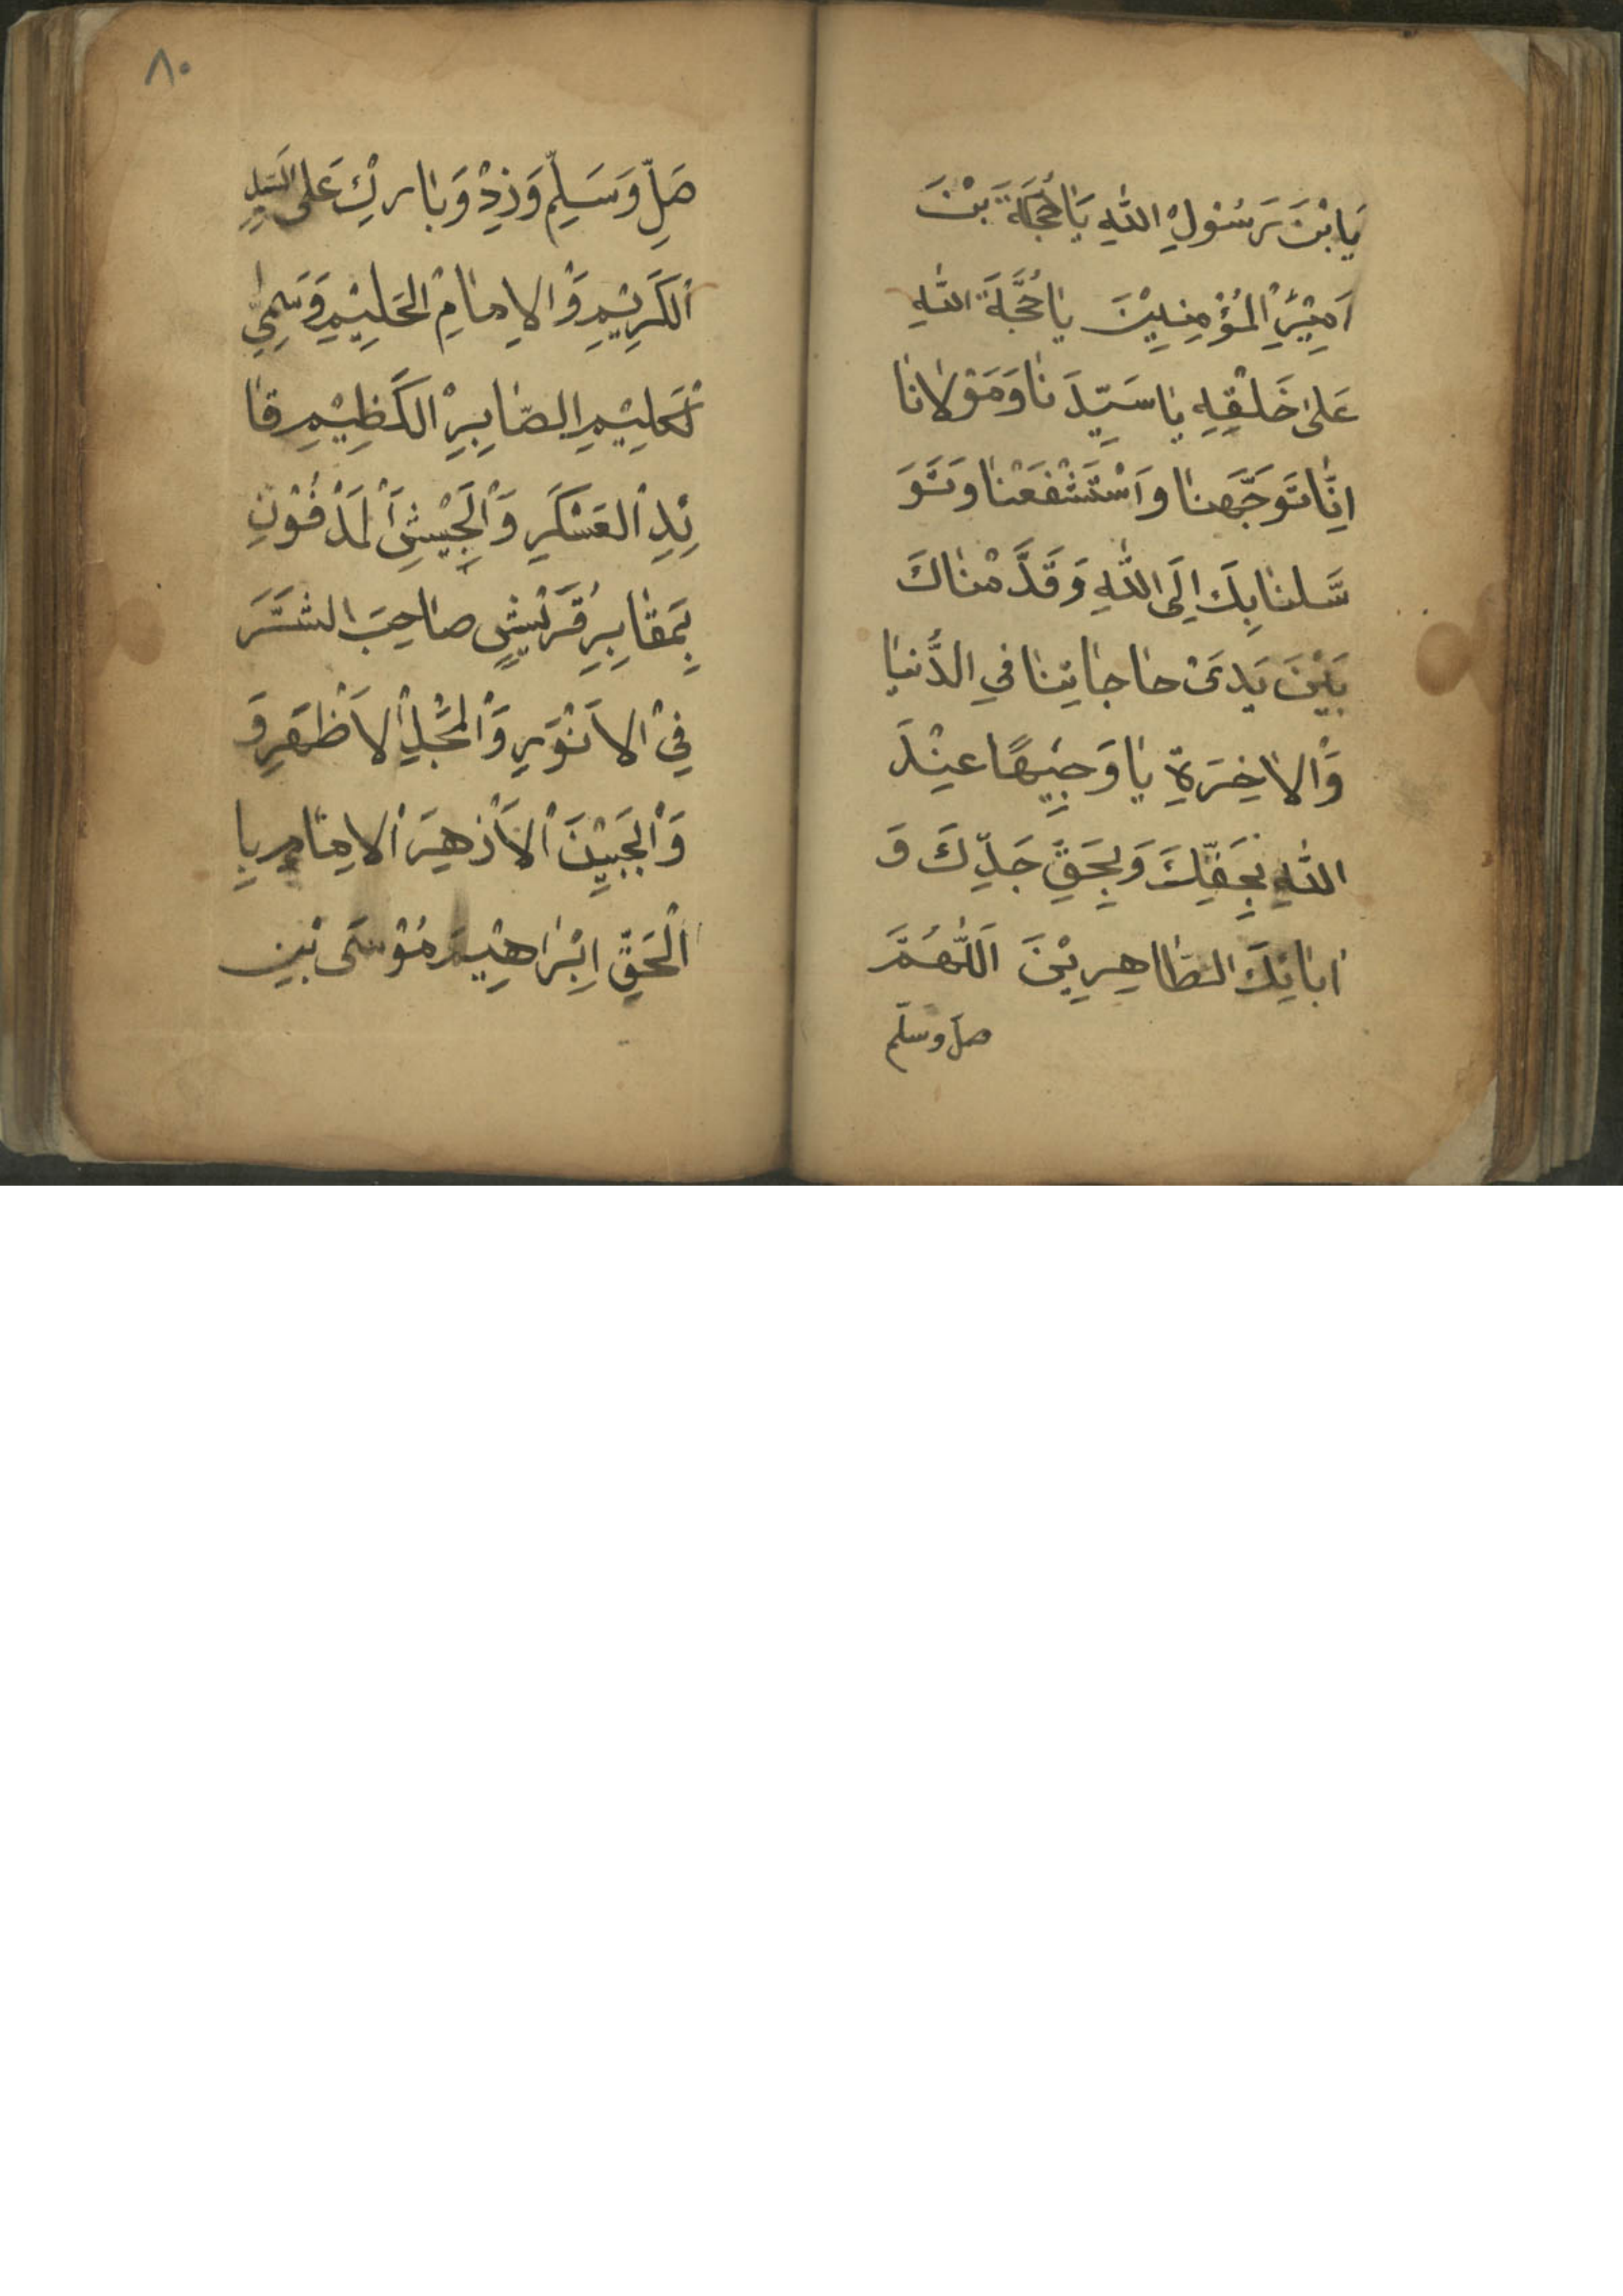 يَابْنَ رَسُوْلِ اللهِ يَا حُجَّةَ بْنَ
اَمِيْرِ الْمُؤْمِنِيْنَ يَا حُجَّةَ اللهِ
عَلىٰ خَلْقِهِ يَا سَيِّدَنَا وَمَوْلانَا
اِنَّا تَوَجَّهنَا وَاسْتَشْفَعْنَا وَتَوَ
سَّلنَا بِكَ اِلَى اللهِ وَقَدَّمْنَاكَ
بَيْنَ يَدَىْ حَاجَاتِنَا فِي الدُّنيَا
وَالاخِرَةِ يَا وَجِيْهًا عِنْدَ
اللهِ بِحَقِّكَ وَبِحَقِّ جَدِّكَ وَ
ابَائِكَ الطَّاهِرِيْنَ اَللّٰهُمَّ
صل وسلّم
٨٠
صَلِّ وَسَلِّمْ وَزِدْ وَبَارِكْ عَلى السَّيِّدِ
الْكَرِيْمِ وَالاِمَامِ الحَلِيْمِ وَسَمِيِّ
الْكَلِيْمِ الصَّابِرِ الْكَظِيْمِ قَا
ئِدِ الْعَسْكَرِ وَالْجَيْشِ الْمَدْفُوْنِ
بِمَقَابِرِ قُرَيْشٍ صَاحِبَ الشَّرَ
فِ الاَنْوَرِ وَالْمَجْدِ الاَظْهَرِ وَ
وَالْجَبِيْنَ الاَزْهَرَ الاِمَامِ بِا
الْحَقِّ اِبْرَاهِيْمَ مُوْسَى بْنِ